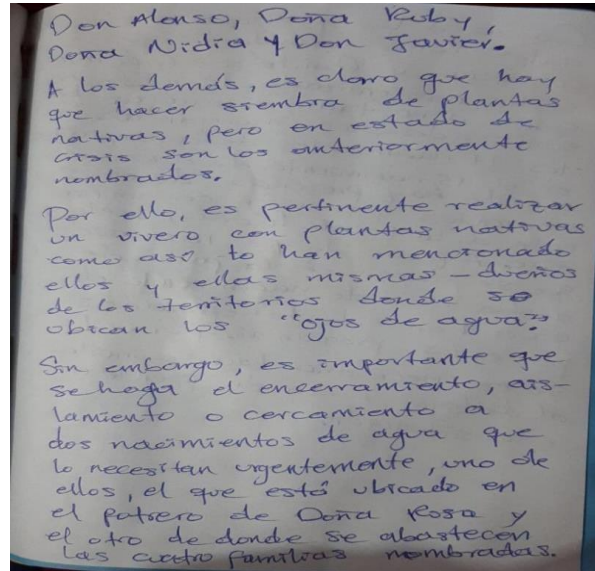 Don Alonso, Doña Ruby,
Doña Nidia y Don Javier.
A los demás, es claro que hay
que hacer siembra de plantas
nativas, pero en estado de
crisis son los anteriormente
nombrados.
Por ello, es pertinente realizar
un vivero con plantas nativas
como así lo han mencionado
ellos y ellas mismas – dueños
de los territorios donde se
ubican los "ojos de agua".
Sin embargo, es importante que
se haga el encerramiento, ais-
lamiento o cercamiento a
dos nacimientos de agua que
lo necesitan urgentemente, uno de
ellos, el que está ubicado en
el potrero de Doña Rosa y
el otro de donde se abastecen
las cuatro familias nombradas.